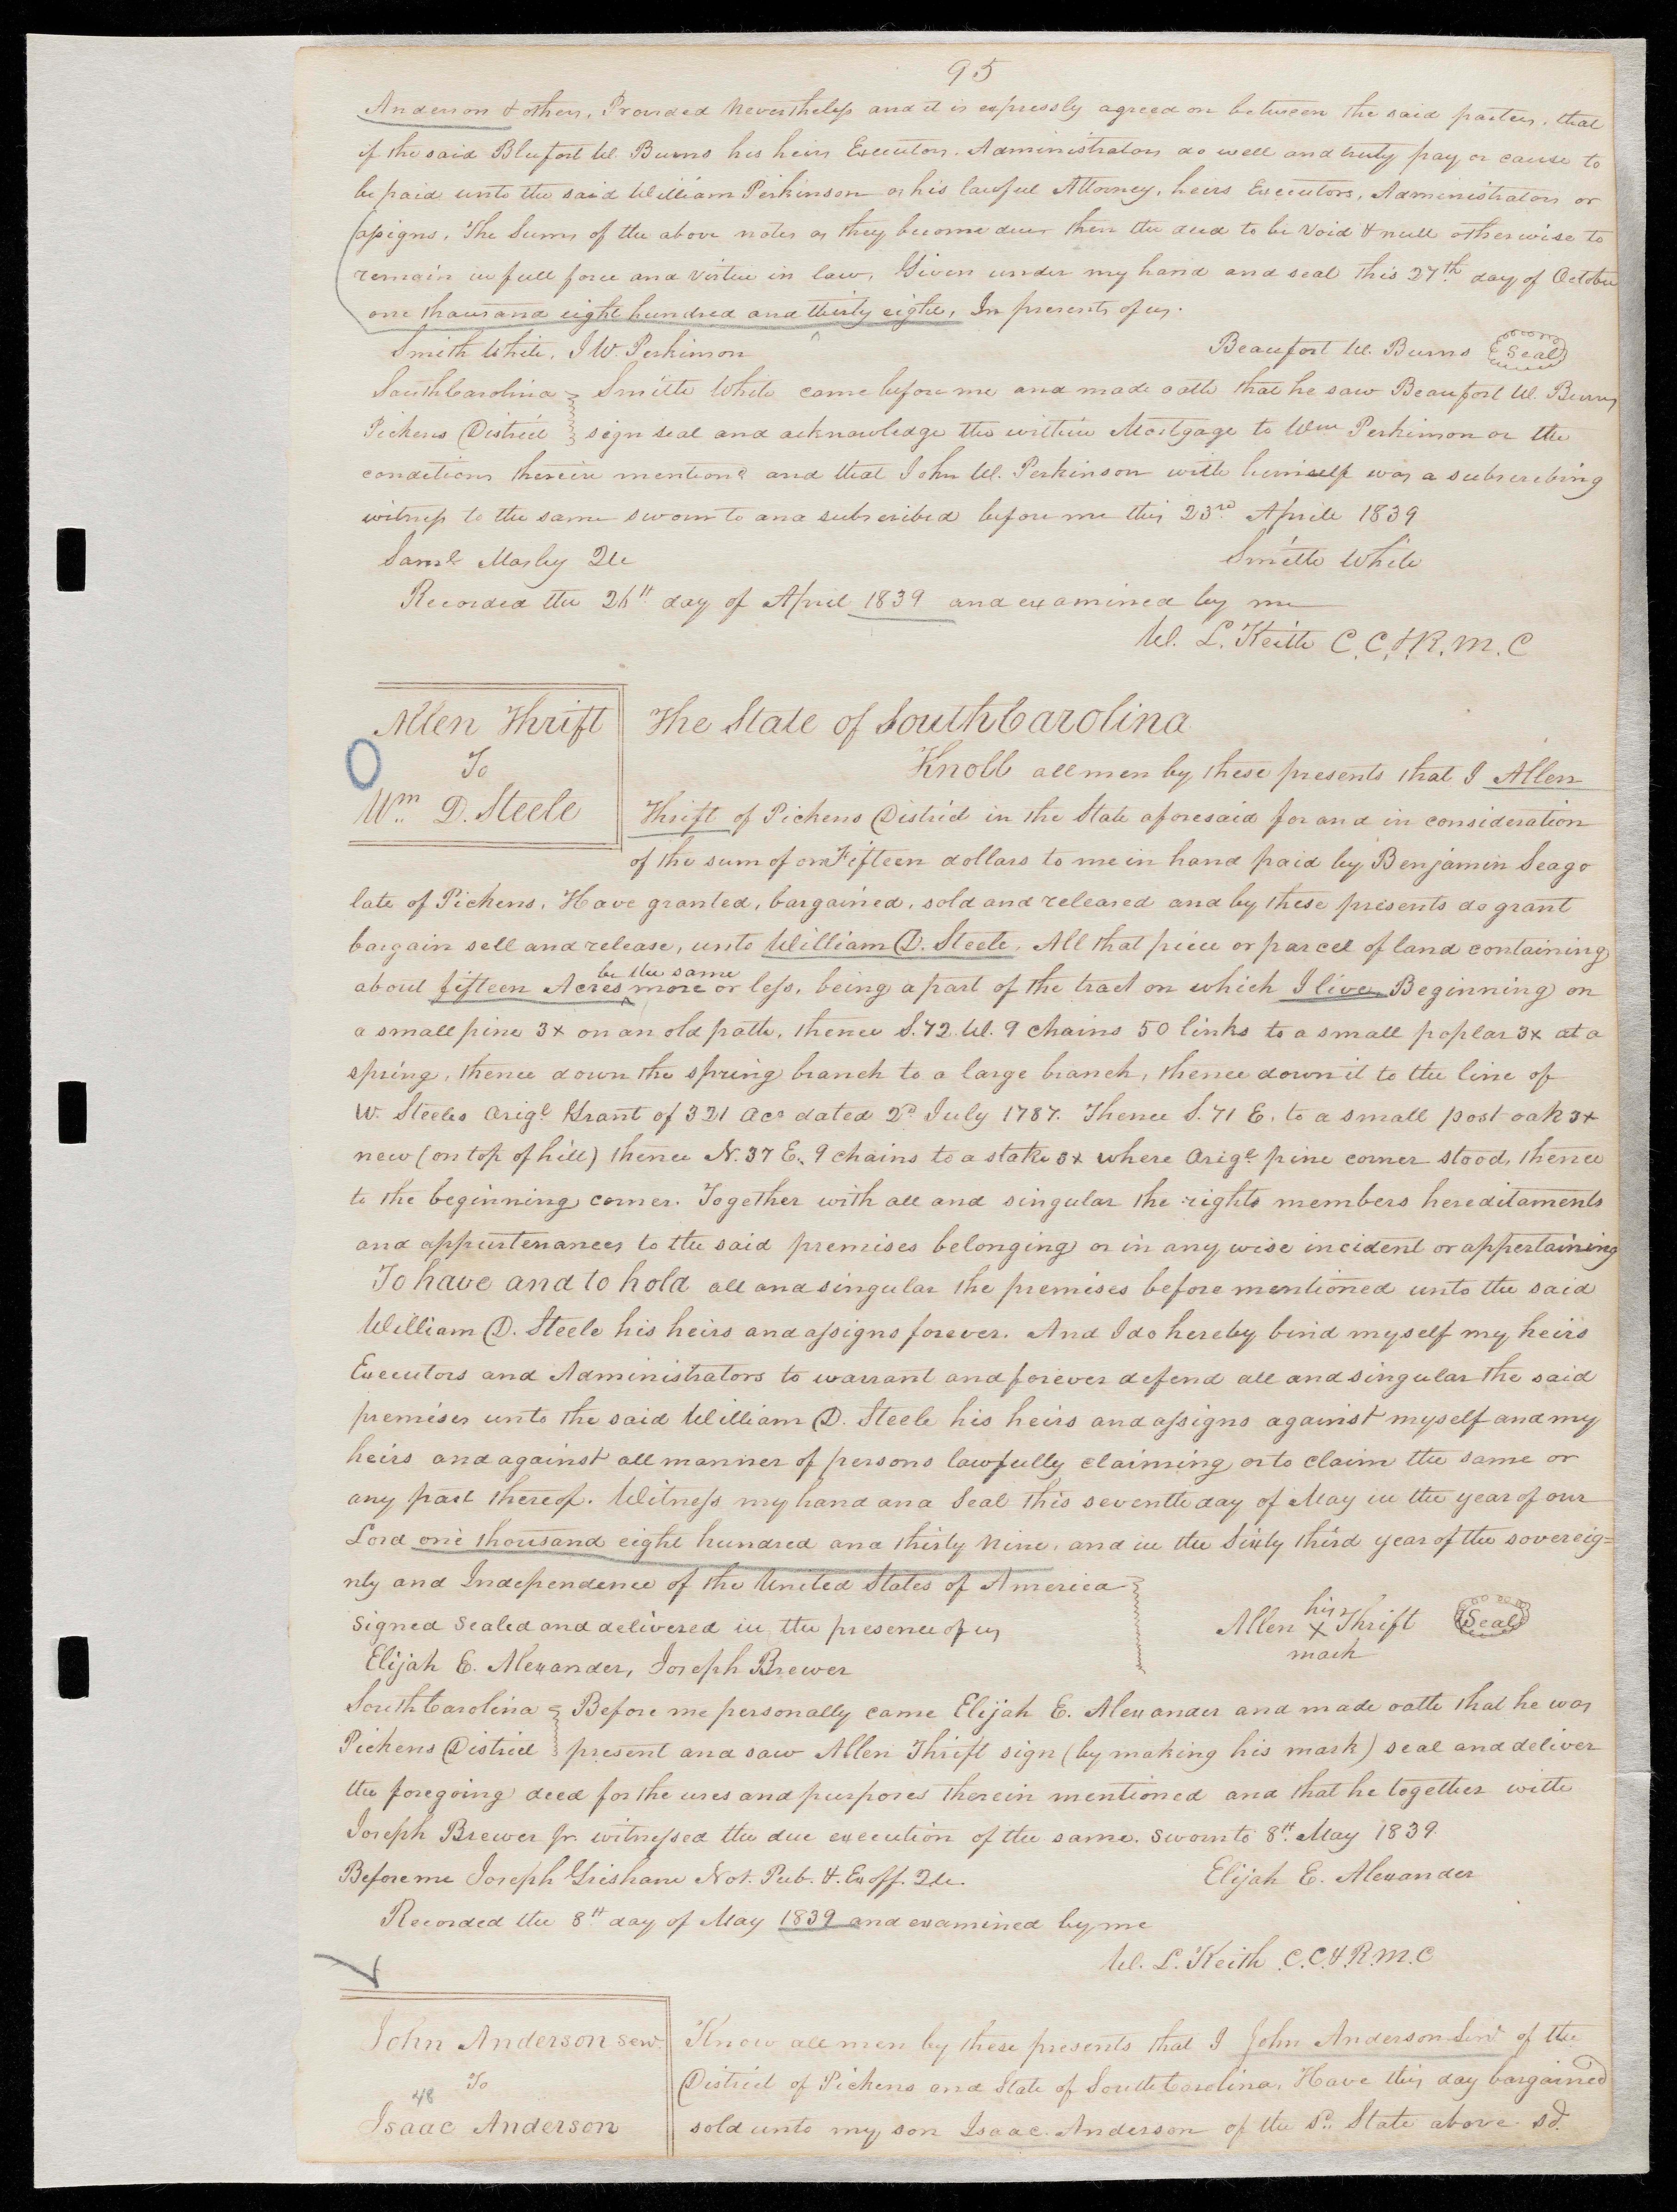 95
Anderson & others, Provided Nevertheless and it is expressly agreed on between the said parties, that
if the said Blufort W. Burns his heirs Executors, Administrators do well and truly pay or cause to
be paid unto the said William Perkinson or his lawful Attorney, heirs Executors, Administrators or
assigns, The Sums of the above notes as they become due then the deed to be Void & null otherwise to
remain in full force and virtue in law, Given under my hand and seal this 27th day of October
one thousand eight hundred and thirty eight, In presents of us.
Smith White, J W. Perkinson
Beaufort W. Burns Seal
South Carolina Smith White came before me and made oath that he saw Beaufort W. Burns
Pickens District sign seal and acknowledge the within Mortgage to Wm Perkinson on the
conditions therein mentiond and that John W. Perkinson with himself was a subscribing
witness to the same sworn to and subscribed before me this 23rd Aprile 1839
Saml Mosley QU
Smith White
Recorded the 26th day of April 1839 and examined by me
W. L. Keith C.C.&R.M.C
Allen Thrift
To
Wm D. Steele
The State of South Carolina
Knoll all men by these presents that I Allen
Thrift of Pickens District in the State aforesaid for and in consideration
of the sum of on Fifteen dollars to me in hand paid by Benjamin Seago
late of Pickens, Have granted, bargained, sold and released and by these presents do grant
bargain sell and release, unto William D. Steele, All that piece or parcel of land containing
be the same
about fifteen Acres more or less, being a part of the tract on which I live, Beginning on
a small pine 3x on an old path, thence S. 72. W. 9 chains 50 links to a small poplar 3x at a
spring, thence down the spring branch to a large branch, thence down it to the line of
W. Steeles Origl Grant of 321 acs dated 2d July 1787. Thence S. 71 E. to a small post oak 3x
new (on top of hill) thence N. 37 E. 9 chains to a stake 3x where Origl pine corner stood, thence
to the beginning corner. Together with all and singular the rights members hereditaments
and appurtenances to the said premises belonging or in any wise incident or appertaining
To have and to hold all and singular the premises before mentioned unto the said
William D. Steele his heirs and assigns forever. And I do hereby bind myself my heirs
Executors and Administrators to warrant and forever defend all and singular the said
premises unto the said William D. Steele his heirs and assigns against myself and my
heirs and against all manner of persons lawfully claiming or to claim the same or
any part thereof. Witness my hand and Seal this seventh day of May in the year of our
Lord one thousand eight hundred and thirty nine, and in the Sixty third year of the sovereig=
nty and Independence of the United States of America
Signed Sealed and delivered in the presence of us
Elijah E. Alexander, Joseph Brewer
his
Allen x Thrift Seal
mark
South Carolina Before me personally came Elijah E. Alexander and made oath that he was
Pickens District present and saw Allen Thrift sign (by making his mark) seal and deliver
the foregoing deed for the uses and purposes therein mentioned and that he together with
Joseph Brewer Jr. witnessed the due execution of the same. Sworn to 8th May 1839
Before me Joseph Grisham Not. Pub. & Ex off. QU.
Elijah E. Alexander
Recorded the 8th day of May 1839 and examined by me
W. L. Keith C.C.&R.M.C
John Anderson Senr.
To
48
Isaac Anderson
Know all men by these presents that I John Anderson Senr of the
District of Pickens and State of South Carolina, Have this day bargained
sold unto my son Isaac Anderson of the Sd. State above sd.